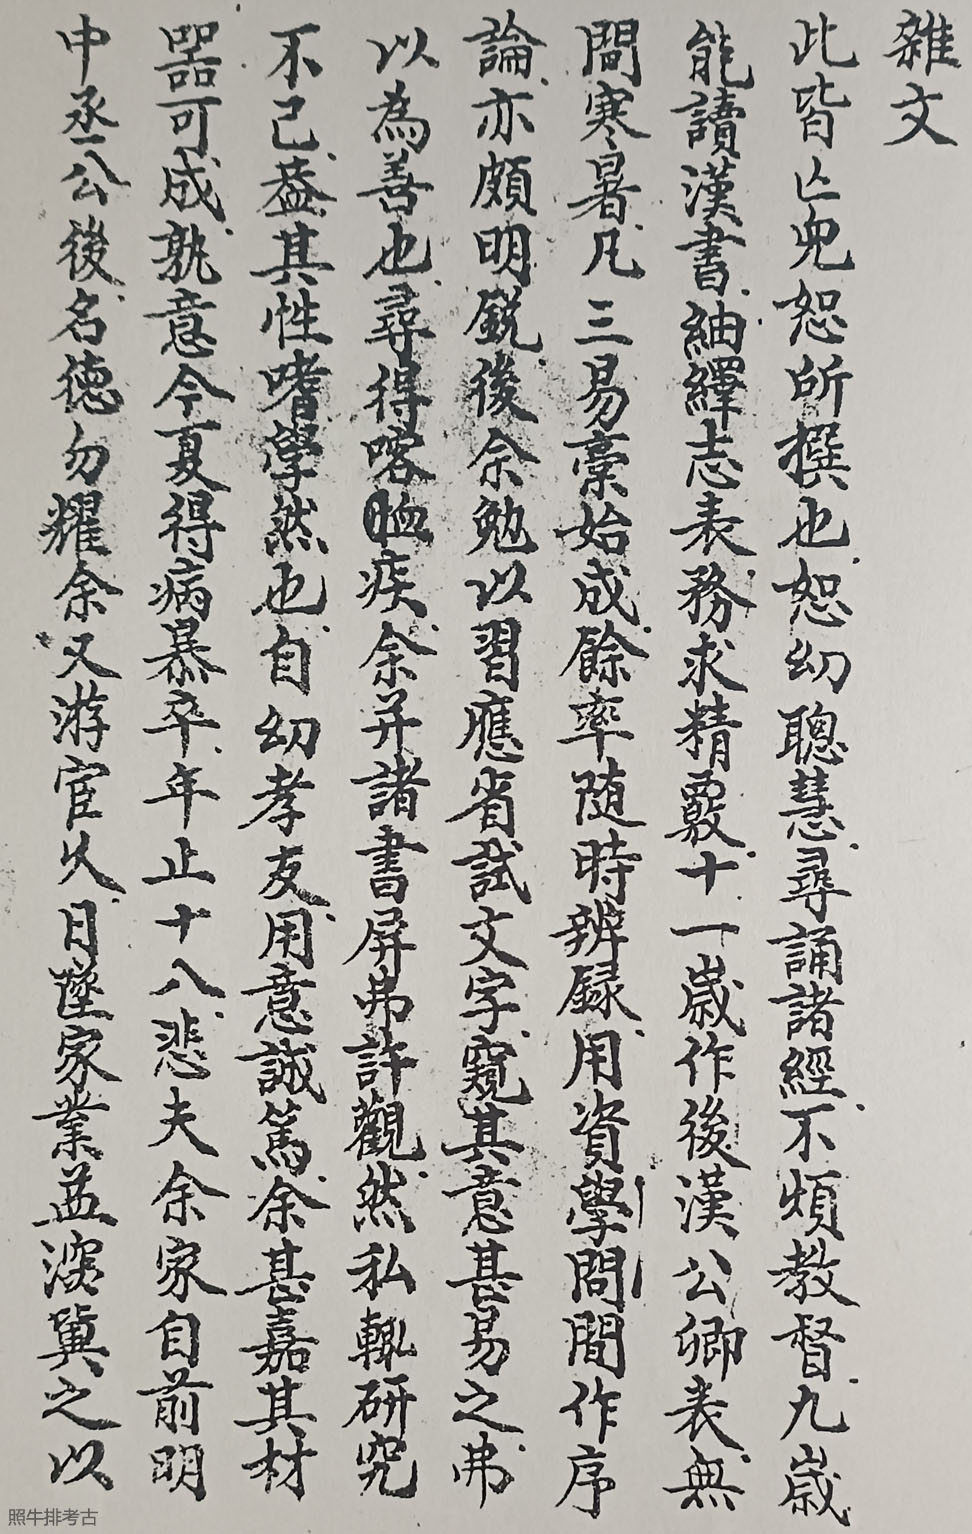 雜文
此皆亾兒恕所撰也恕幼聰慧尋誦諸經不煩教督九嵗
能讀漢書紬繹志表務求精覈十一嵗作後漢公卿表無
間寒暑凡三易稾始成餘率随時辨録用資學問間作序
論亦頗明鋭後余勉以習應省試文字窺其意甚易之弗
以為善也尋得喀衂疾余并諸書屏弗許觀然私輒研究
不已葢其性嗜學然也自幼孝友用意誠篤余甚嘉其材
噐可成孰意今夏得病暴卒年止十八悲夫余家自前明
中丞公後名德勿耀余又游宦乆日墜家業並深冀之以
照牛排考古